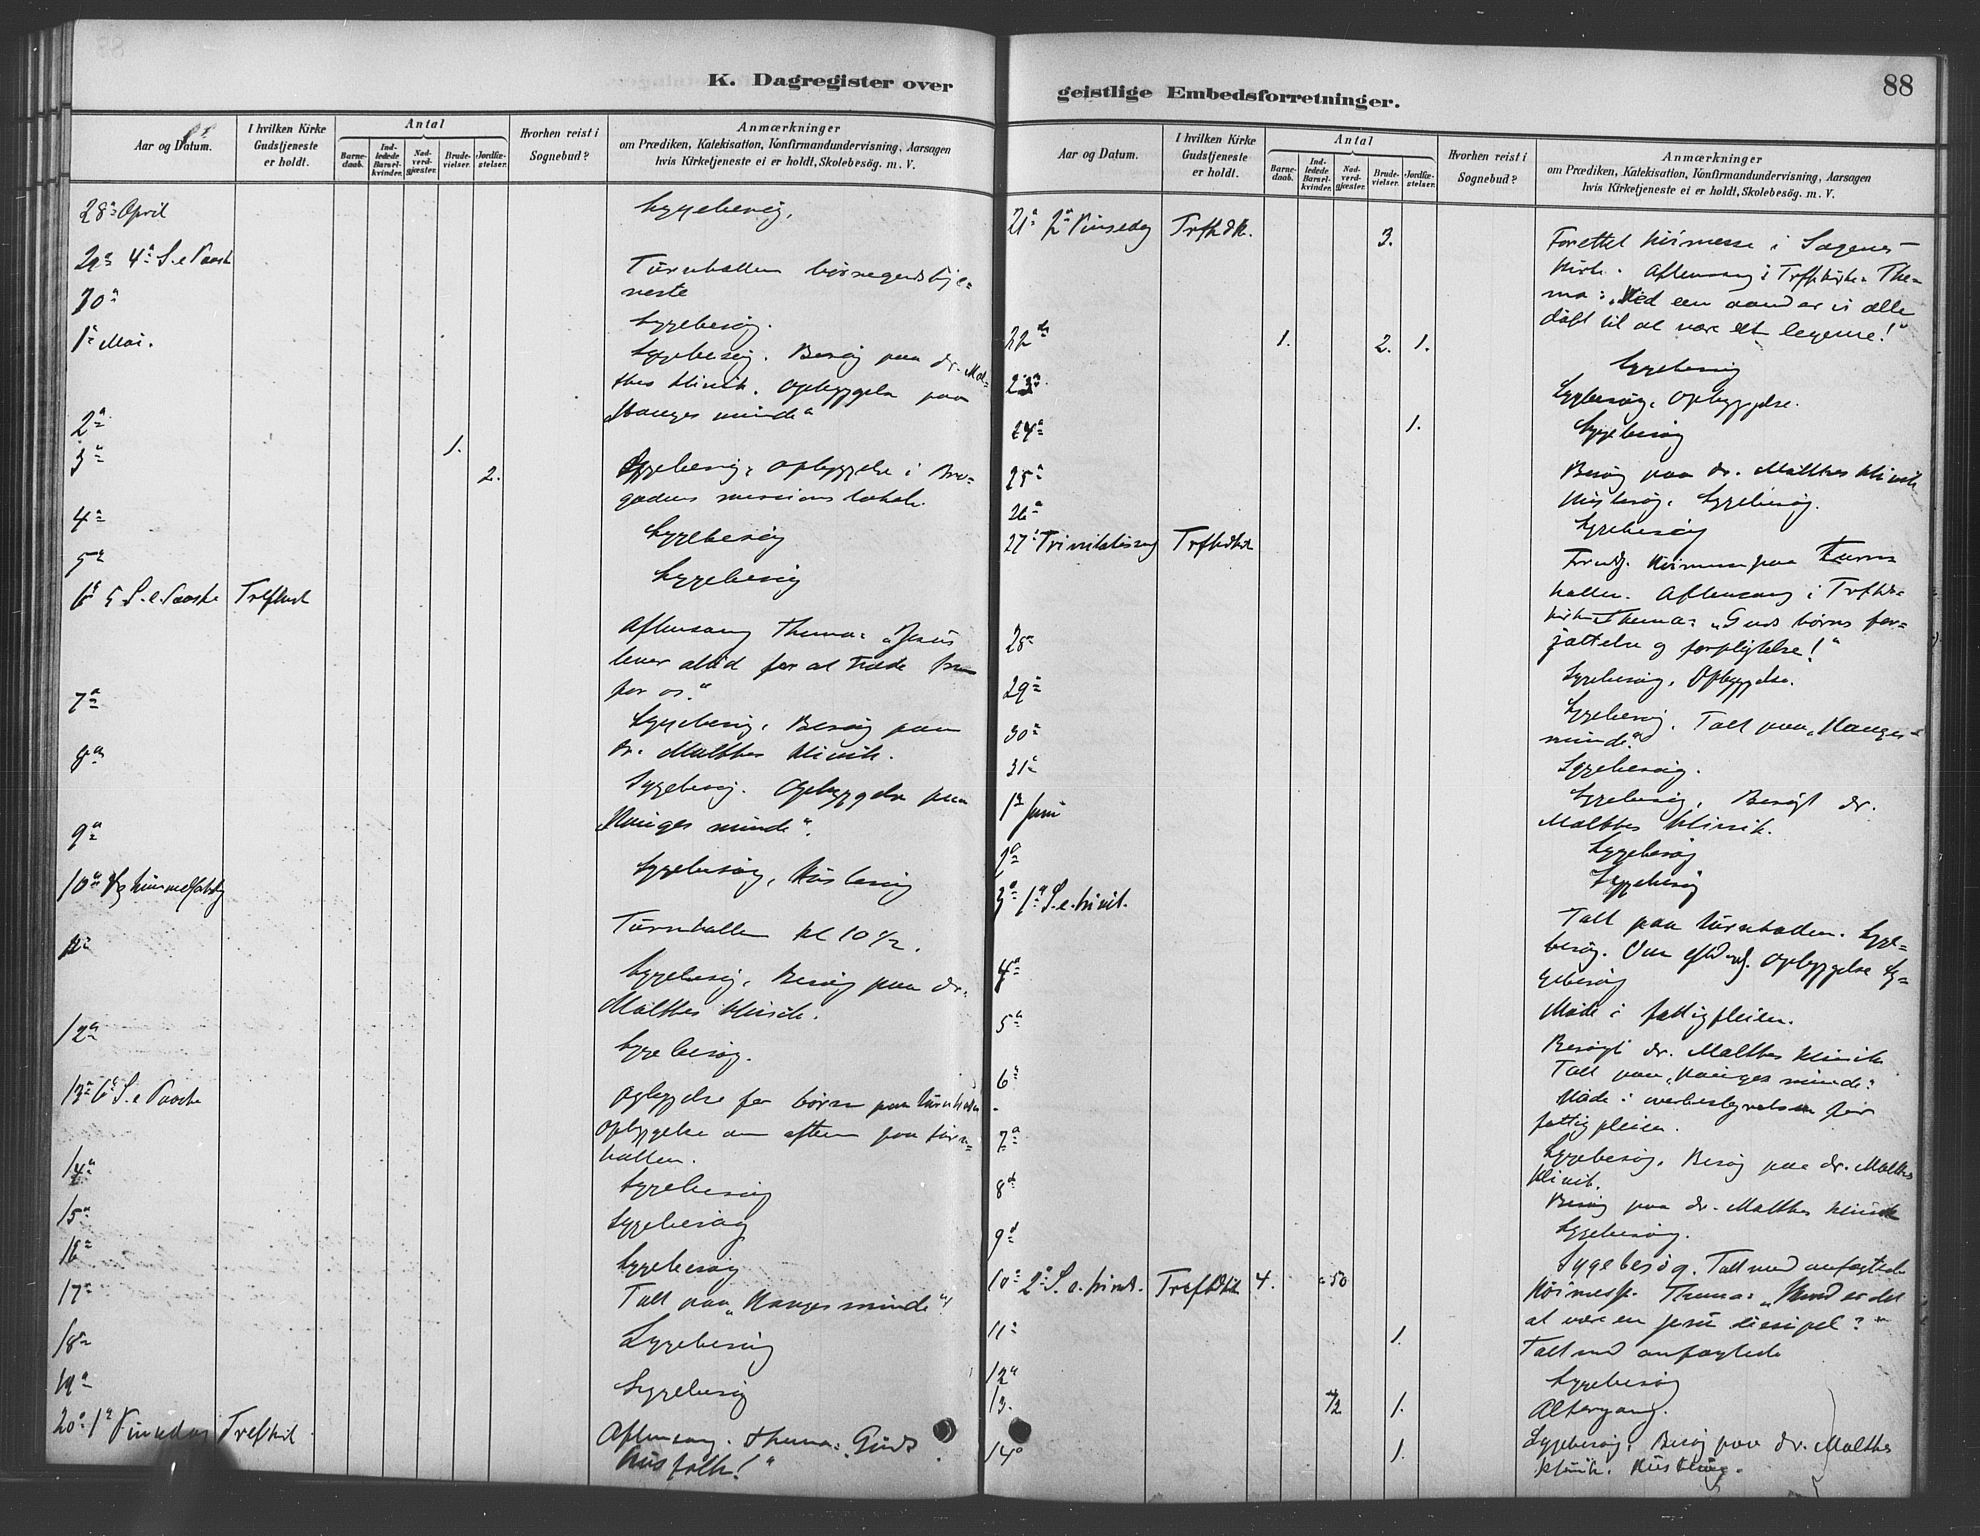 K. Dagregister over
Aar og Datum.
I hvilken Kirke Gudstjeneste er holdt.
Antal
Barne-daab.
Ind-ledede Barsel-kvinder.
Nad-verd-gjæster.
Brude-vielser.
Jordfæ-stelser.
Hvorhen reist i Sognebud?
Anmærkninger
om Prædiken, Katekisation, Konfirmandundervisning, Aarsagen
hvis Kirketjeneste ei er holdt, Skolebesög. m. V.
28 April
Sygebesøg.
29 4 S. e Paaske
Turnhallen børnegudstje-
neste
30
Sygebesøg.
1 Mai.
Sygebesøg. Besøg paa dr. Mal-
thes klinik. Opbyggelse paa
„Hauges minde“
2
3
1.
2.
Sygebesøg, opbyggelse i Bre-
gadens missions lokale.
4
Sygebesøg
5
Sygebesøg
6 5 S. e. Paaske
Aftensang Thema: „Jesus
lever altid for at træde frem
for os.“
7
Sygebesøg. Besøg paa
Dr. Malthes klinik.
8
Sygebesøg. Opbyggelse paa
„Hauges minde“.
9
Sygebesøg, Husbesøg
10 Himmelfartsdg
Turnhallen kl 10 1/2.
11
Sygebesøg, Besøg paa dr.
Malthes klinik.
12
Sygebesøg.
13 6 S. e Paaske
Opbyggelse for børn paa turnhallen
Opbyggelse om aften paa turn-
hallen.
14
Sygebesøg
15
Sygebesøg
16
Sygebesøg
17
Talt paa „Hauges minde“
18
Sygebesøg
19
Sygebesøg
20 1 Pinsedag
Aftensang. Thema: „Guds
husfolk!“
geistlige Embedsforretninger.
88
Aar og Datum.
I hvilken Kirke Gudstjeneste er holdt.
Antal
Barne-daab.
Ind-ledede Barsel-kvinder.
Nad-verd-gjæster.
Brude-vielser.
Jordfæ-stelser.
Hvorhen reist i Sognebud?
Anmærkninger
om Prædiken, Katekisation, Konfirmandundervisning, Aarsagen
hvis Kirketjeneste ei er holdt, Skolebesög. m. V.
21 2 Pinsedag
3.
Forettet høimesse i Sagenes
kirke. Aftensang i Trfk kirke. The-
ma: „Ved een aand er vi alle
døbt til at være et legeme!“
22
1. 2. 1.
Sygebesøg
23
Sygebesøg, Opbyggelse.
24
1.
Sygebesøg
25
Besøg paa dr. Malthes klinik
Husbesøg, Sygebesøg.
26
Sygebesøg
27 Trinitatissøg
Høimesse paa Turn
hallen. Aftensang i
kirke Thema: „Guds børns for-
jættelse og forpligtelse!“
28
Sygebesøg, Opbyggelse.
29
Sygebesøg. Talt paa „Hauges
minde“
30
Sygebesøg.
31
Sygebesøg, Besøgt dr.
Malthes klinik.
1 Juni
Sygebesøg
2
Sygebesøg
3 1 S. e. trinit.
Talt paa turnhallen. Syge-
besøg. Opbyggelse Sy-
gebesøg
4
Møde i fattigpleien.
5
Besøgt dr. Malthes klinik
Talt paa „Hauges minde“
6
Møde i overbestyrelsen for
fattigpleien.
7
Sygebesøg, Besøg paa dr. Malthes
klinik.
8
Besøg paa dr. Malthes klinik
9
Sygebesøg.
Sygebesøg. Talt med anfægtede
10 2 S. e. trinit.
4. 50
Høimesse. Thema: „Hvad er det
at være en Jesu discipel?“
11
1.
Talt med anfægtede
12
Sygebesøg
13.
12 1.
Altergang.
14
1.
Sygebesøg, Besøg paa dr. Malthes
klinik. Husbesøg.